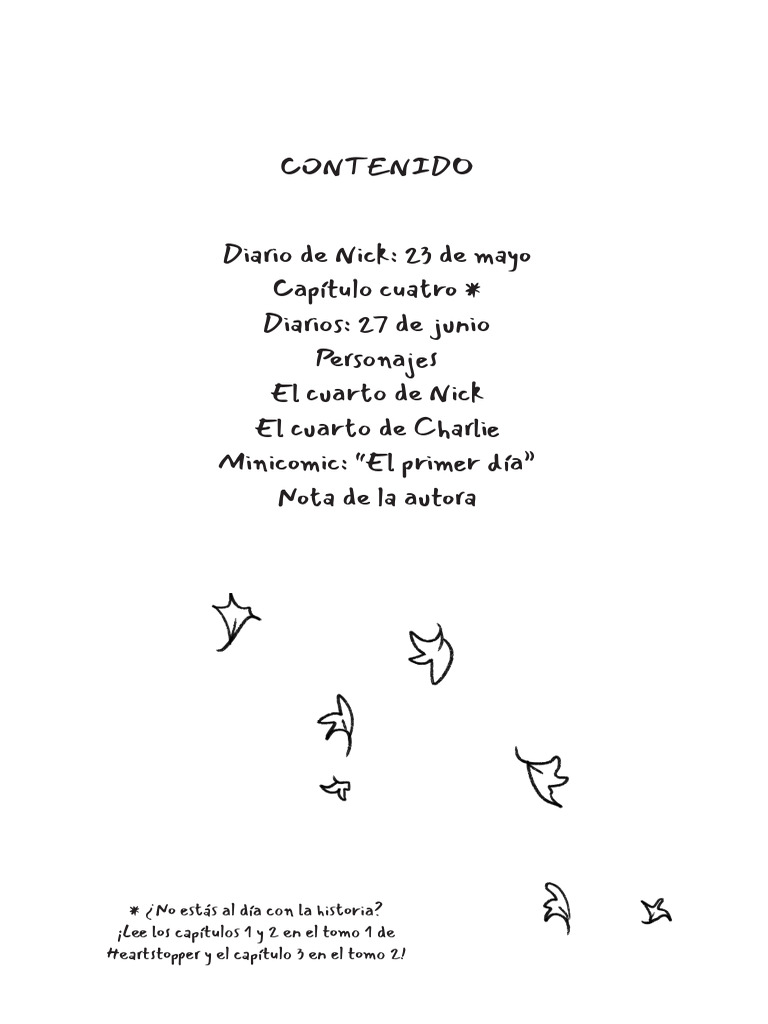 CONTENIDO
Diario de Nick: 23 de mayo
Capítulo cuatro *
Diarios: 27 de junio
Personajes
El cuarto de Nick
El cuarto de Charlie
Minicomic: “El primer día”
Nota de la autora
* ¿No estás al día con la historia?
¡Lee los capítulos 1 y 2 en el tomo 1 de
Heartstopper y el capítulo 3 en el tomo 2!